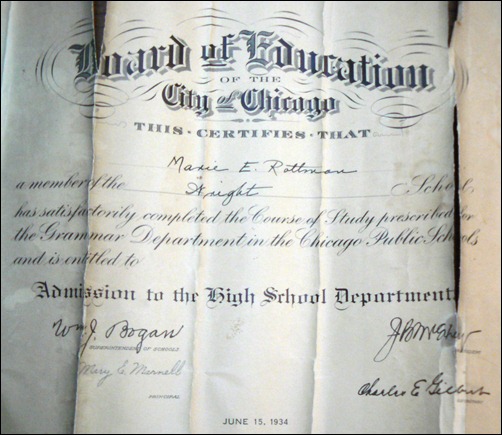 Board of Education
OF THE
City of Chicago
THIS · CERTIFIES · THAT
Marie E. Rottman
a member of the Wright School,
has satisfactorily completed the Course of Study prescribed for
the Grammar Department in the Chicago Public Schools
and is entitled to
Admission to the High School Department
Wm. J. Bogan
SUPERINTENDENT OF SCHOOLS
Mary E.
PRINCIPAL
Charles E. Gilbert
JUNE 15, 1934